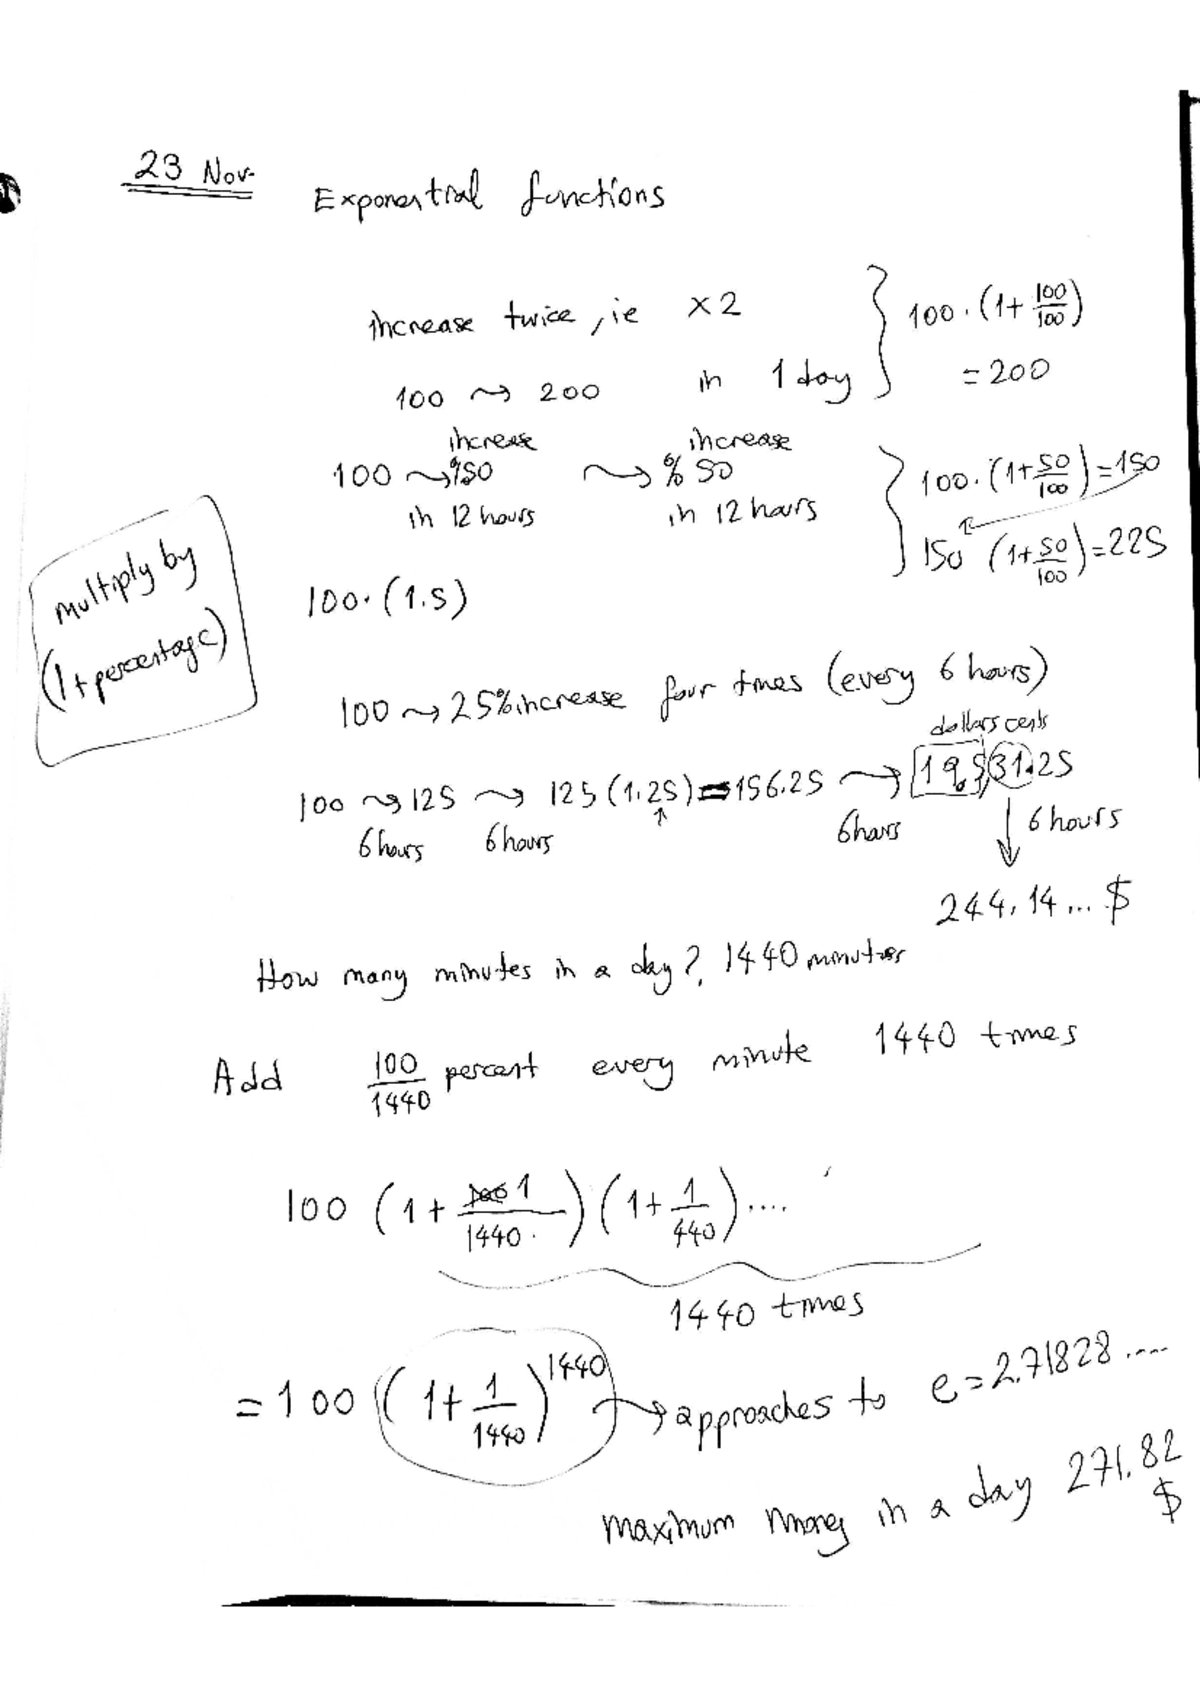 23 Nov.
Exponential functions
increase twice, ie ×2
100 ⇝ 200 in 1 day
100 · (1+ 100/100)
= 200
increase increase
100 ⇝ %50 ⇝ % 50
in 12 hours in 12 hours
100 · (1+ 50/100) = 150
150 (1+ 50/100) = 225
multiply by
(1+percentage)
100 · (1.5)
100 ⇝ 25% increase four times (every 6 hours)
dollars cents
100 ⇝ 125 ⇝ 125 (1.25) = 156.25 ⇝ 195,31.25
6 hours 6 hours 6 hours 6 hours
244,14... $
How many minutes in a day? 1440 minutes
Add 100/1440 percent every minute 1440 times
100 (1+ 1/1440) (1+ 1/440) ....
1440 times
= 100 (1+ 1/1440)^1440 → approaches to e=2.71828....
maximum money in a day 271.82 $